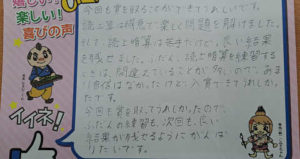 嬉しい!
楽しい!
喜びの声
今回も賞を取ることができてうれしいです。
読上算は得意で楽しく問題を解けました。
そして、読上暗算は苦手だけど、良い結果
を残せました。ふだん、読上暗算を練習する
ときは、間違えていることが多いので、あま
り自信はなかったけど入賞できてうれしかっ
たです。
今回も賞を取ってうれしかったので、
ふだんの練習も、次回も、良い
結果が残せるようにがんば
りたいです。
イイネ!